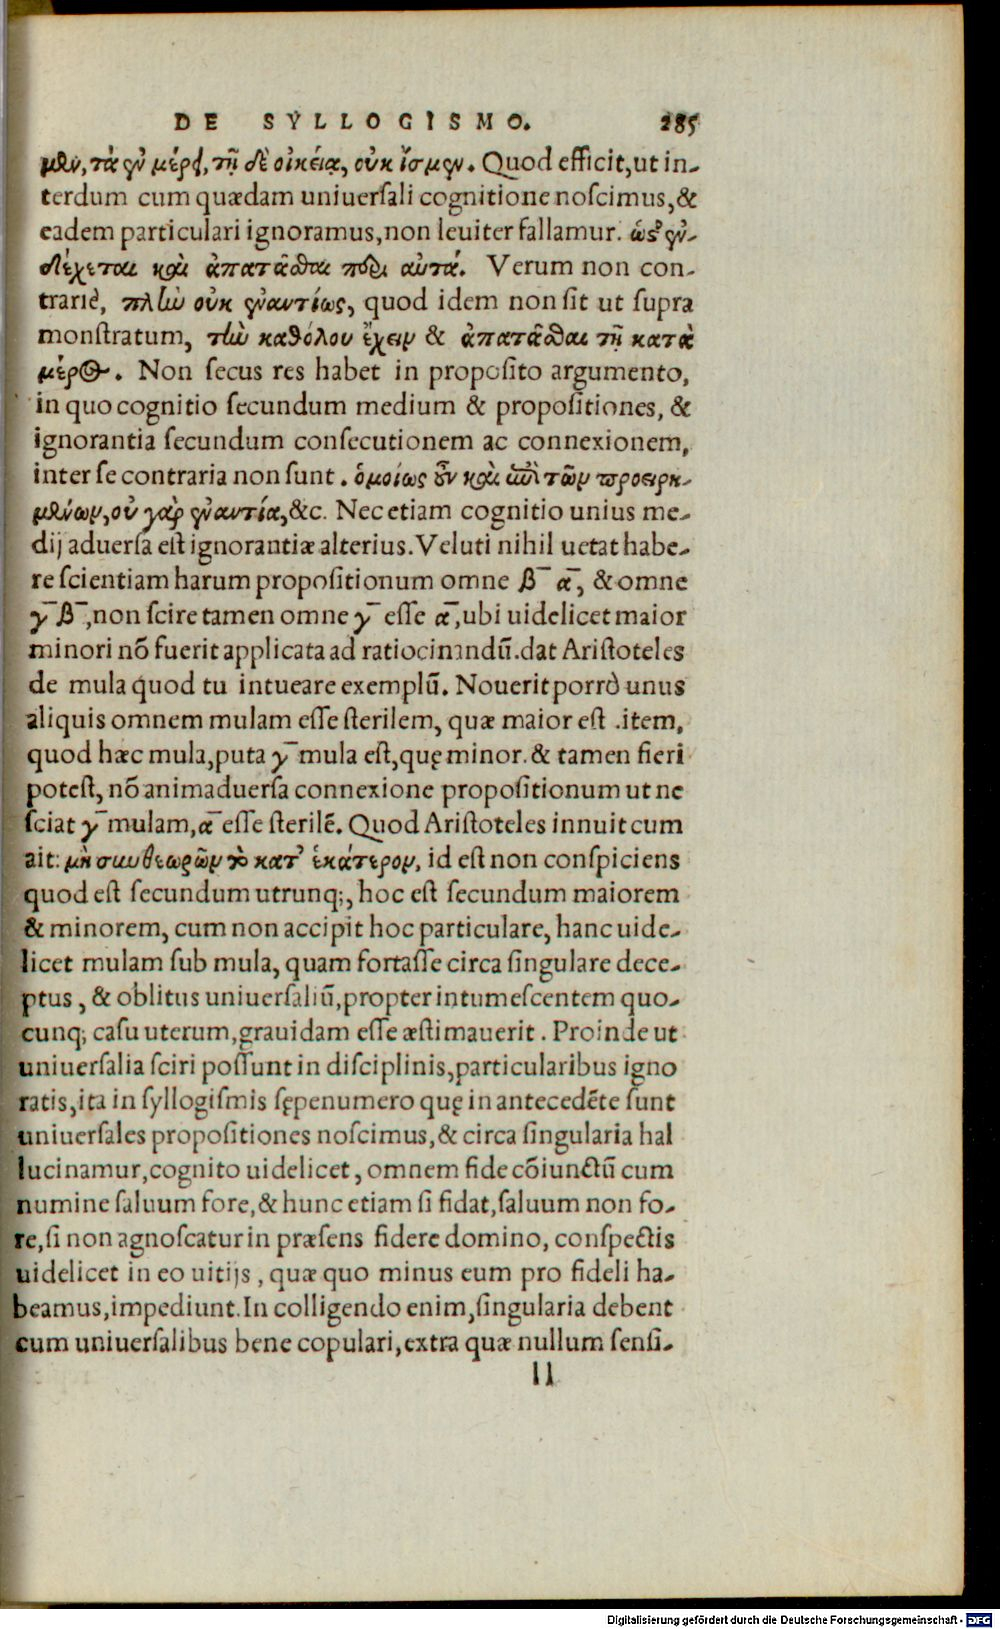 DE SYLLOGISMO. 285
μὲν, τὰ ἐν μέρει, τῇ δὲ οἰκείᾳ, οὐκ ἴσμεν. Quod efficit, ut in-
terdum cum quædam uniuersali cognitione noscimus, &
eadem particulari ignoramus, non leuiter fallamur. ὥστ' ἐν-
δέχεται καὶ ἀπατᾶσθαι περὶ αὐτά. Verum non con-
trariè, πλὴν οὐκ ἐναντίως, quod idem non sit ut supra
monstratum, τὴν καθόλου ἔχειν & ἀπατᾶσθαι τῇ κατὰ
μέρος. Non secus res habet in proposito argumento,
in quo cognitio secundum medium & propositiones, &
ignorantia secundum consecutionem ac connexionem,
inter se contraria non sunt. ὁμοίως οὖν καὶ ἐπὶ τῶν προειρη-
μένων, οὐ γὰρ ἐναντία, &c. Nec etiam cognitio unius me-
dij aduersa est ignorantiæ alterius. Veluti nihil uetat habe-
re scientiam harum propositionum omne β̄ ᾱ, & omne
γ̄ β̄, non scire tamen omne γ̄ esse ᾱ, ubi uidelicet maior
minori nō fuerit applicata ad ratiocinandū. dat Aristoteles
de mula quod tu intueare exemplū. Nouerit porrò unus
aliquis omnem mulam esse sterilem, quæ maior est .item,
quod hæc mula, puta γ̄ mula est, quę minor. & tamen fieri
potest, nō animaduersa connexione propositionum ut ne
sciat γ̄ mulam, ᾱ esse sterilē. Quod Aristoteles innuit cum
ait: μὴ συνθεωρῶν τὸ κατ' ἑκάτερον, id est non conspiciens
quod est secundum utrunq;, hoc est secundum maiorem
& minorem, cum non accipit hoc particulare, hanc uide-
licet mulam sub mula, quam fortasse circa singulare dece-
ptus, & oblitus uniuersaliū, propter intumescentem quo-
cunq; casu uterum, grauidam esse æstimauerit. Proinde ut
uniuersalia sciri possunt in disciplinis, particularibus igno
ratis, ita in syllogismis sępenumero quę in antecedēte sunt
uniuersales propositiones noscimus, & circa singularia hal
lucinamur, cognito uidelicet, omnem fide cōiunctū cum
numine saluum fore, & hunc etiam si fidat, saluum non fo-
re, si non agnoscatur in præsens fidere domino, conspectis
uidelicet in eo uitijs, quæ quo minus eum pro fideli ha-
beamus, impediunt. In colligendo enim, singularia debent
cum uniuersalibus bene copulari, extra quæ nullum sensi-
ll
Digitalisierung gefördert durch die Deutsche Forschungsgemeinschaft - DFG